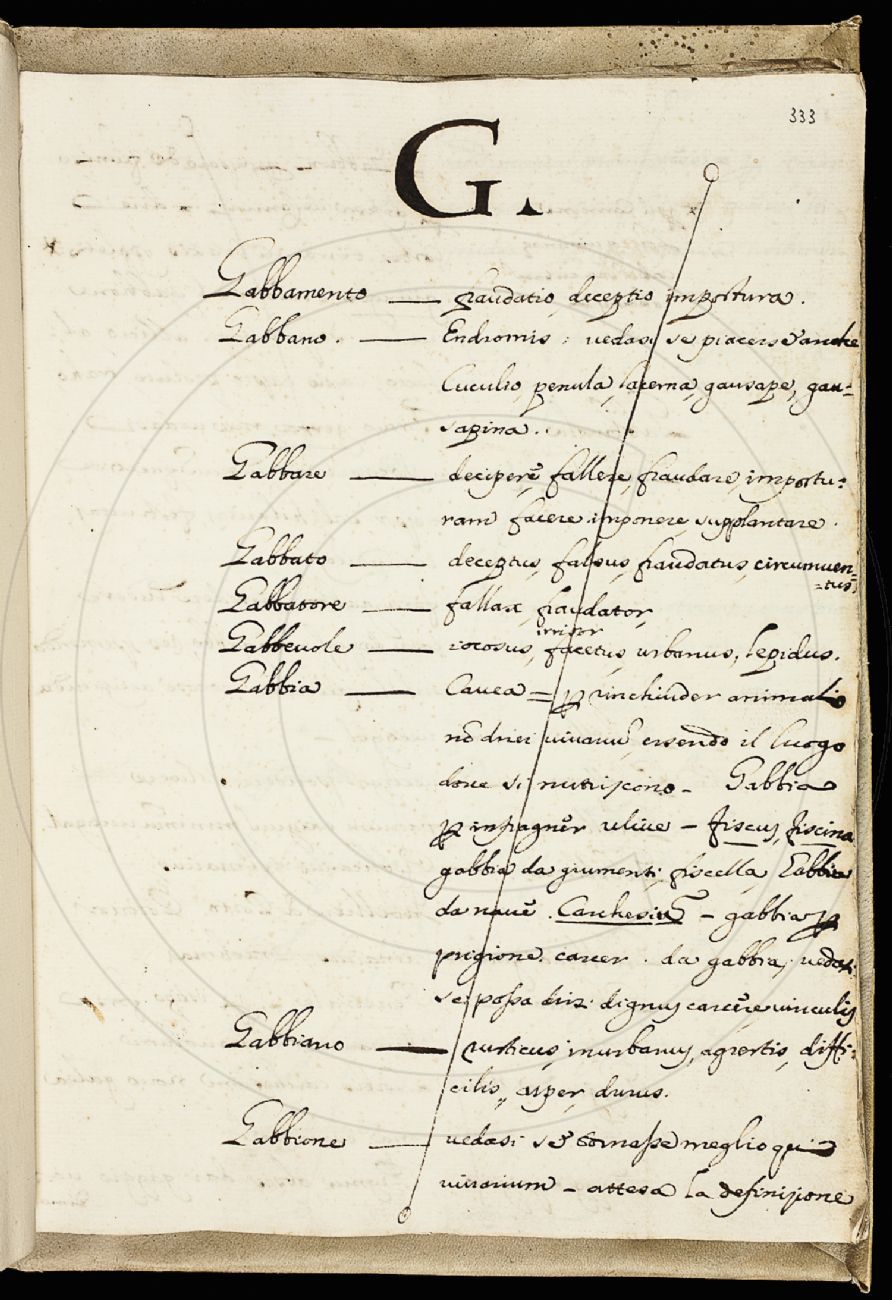 333
G.
Gabbamento — fraudatio, deceptio, impostura.
Gabbano. — Endromis: vedasi se piacesse anche
Cuculio, penula, lacerna, gausape, gau=
sapina.
Gabbare — decipere, fallere, fraudare, impostu=
ram facere, imponere, supplantare.
Gabbato — deceptus, falsus, fraudatus, circumuen=
=tus
Gabbatore — fallax, fraudator,
irrisor
Gabbeuole — iocosus, facetus, urbanus, lepidus.
Gabbia — Cauea = p rinchiuder animali
nõ driei uiuariũ, essendo il luogo
doue si nutriscono - Gabbia
p infragner uliue - fiscus, fiscina
gabbia da giumenti, fiscella, Gabbia
da naue. Carchesiũ - gabbia p
prigione. carcer. da gabbia, vedasi
se possa dirsi dignus carcere uinculis
Gabbiano — rusticus, inurbanus, agrestis, diffi=
cilis, asper, durus.
Gabbione — uedasi se tornasse meglio qui
uiuarium - attesa la definizione